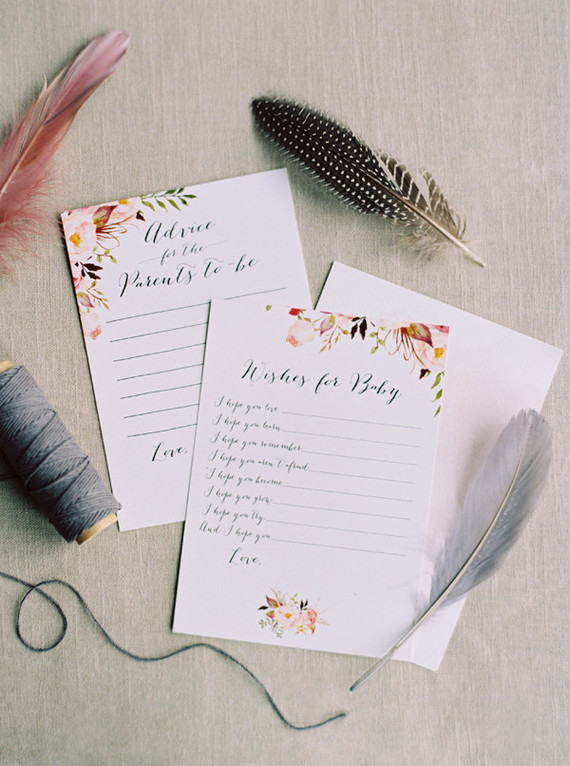 Advice
for the
Parents to-be
Love,
Wishes for Baby
I hope you love
I hope you learn
I hope you remember
I hope you aren't afraid
I hope you become
I hope you grow
I hope you try
And I hope you
Love,